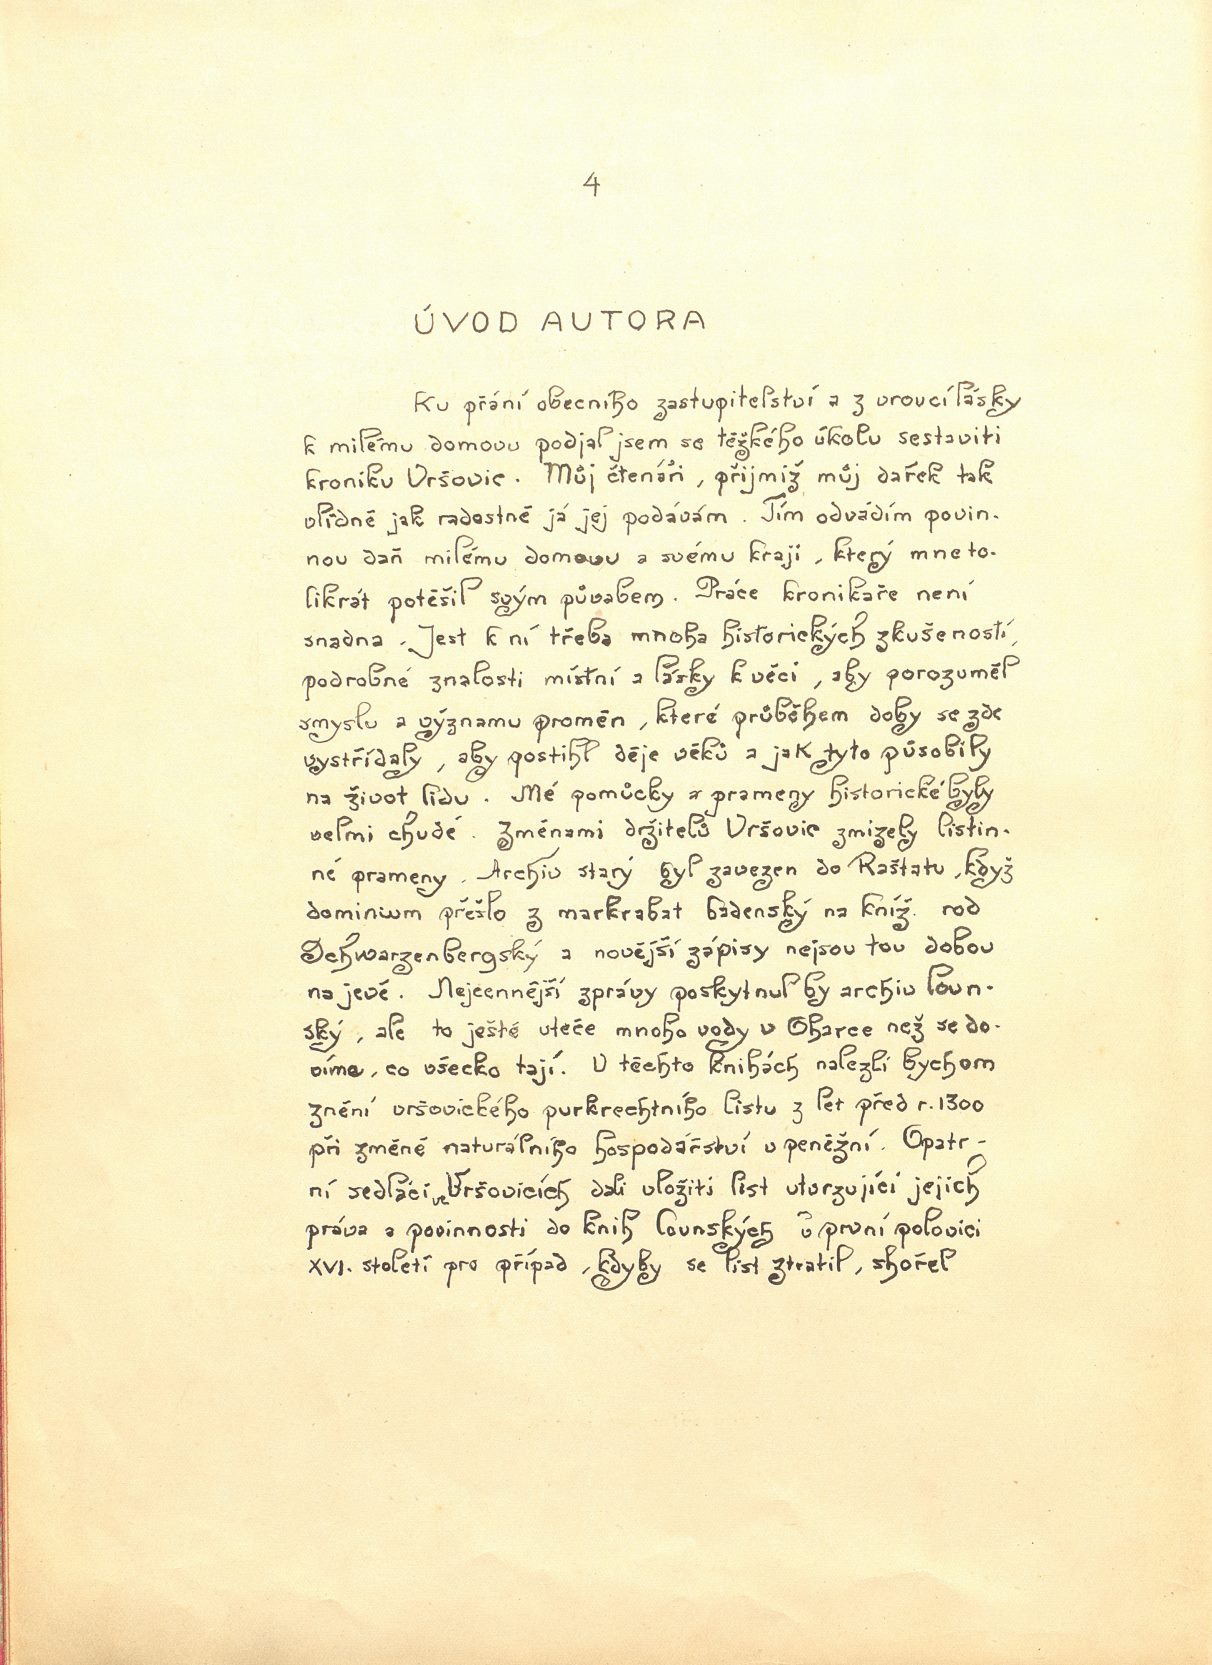 4
ÚVOD AUTORA
Ku přání obecního zastupitelství a z vroucí lásky
k milému domovu podjal jsem se těžkého úkolu sestaviti
kroniku Vršovic. Můj čtenáři, přijmiž můj dárek tak
vlídně jak radostně já jej podávám. Tím odvádím povin-
nou daň milému domovu a svému kraji, který mne to-
likrát potěšil svým půvabem. Práce kronikaře není
snadna. Jest k ní třeba mnoha historických zkušeností,
podrobné znalosti místní a lásky k věci, aby porozuměl
smyslu a významu proměn, které průběhem doby se zde
vystřídaly, aby postihl děje věků a jak tyto působily
na život lidu. Mé pomůcky a prameny historické byly
velmi chudé. Změnami držitelů Vršovic zmizely listin-
né prameny. Archiv starý byl zavezen do Raštatu, když
dominium přešlo z markrabat badenský na kníž. rod
Schwarzenbergský a novější zápisy nejsou tou dobou
na jevě. Nejcennější zprávy poskytnul by archiv loun-
ský, ale to ještě uteče mnoho vody v Oharce než se do-
víme, co všecko tají. V těchto knihách nalezli bychom
znění vršovického purkrechtního listu z let před r. 1300
při změně naturálního hospodářství v peněžní. Opatr-
ní sedláci ve Vršovicích dali vložiti list utvrzující jejich
práva a povinnosti do knih lounských v první polovici
XVI. století pro případ, kdyby se list ztratil, shořel